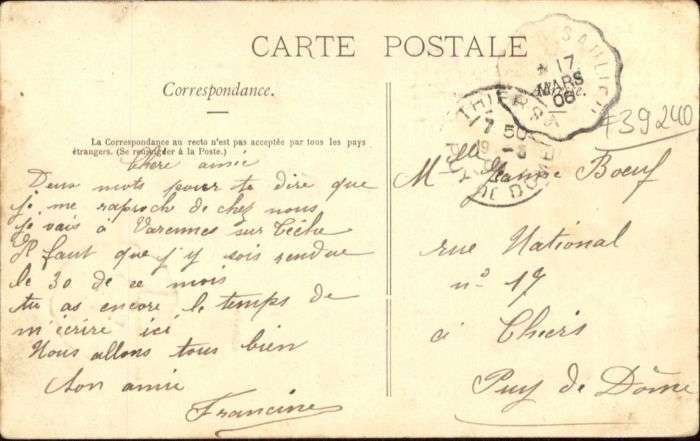 CARTE POSTALE
Correspondance.
La Correspondance au recto n'est pas acceptée par tous les pays
étrangers. (Se renseigner à la Poste.)
Chère amie
Deux mots pour te dire que
je me raproch de chez nous
je vais à Varennes sur Tèche
Il faut que j'y sois rendue
le 30 de ce mois
tu as encore le temps de
m'écrire ici
Nous allons tous bien
ton amie
Francine
17
MARS
06
THIERS
7 50
19 - 3
PUY DE DOME
F39240
Mlle Jeanne Boeuf
rue National
n° 17
à Thiers
Puy de Dôme